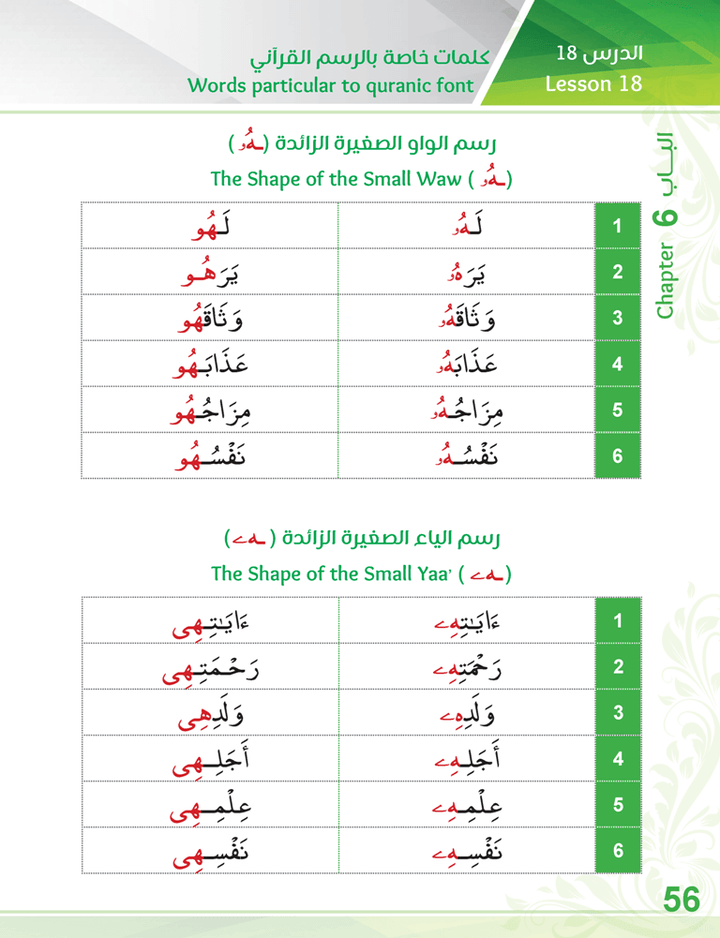 الدرس 18
كلمات خاصة بالرسم القرآني
Lesson 18
Words particular to quranic font
البـــاب
Chapter 6
رسم الواو الصغيرة الزائدة (ـهُۥ)
The Shape of the Small Waw (ـهُۥ)
1 لَـهُۥ لَـهُو
2 يَرَهُۥ يَرَهُـو
3 وَثَاقَهُۥ وَثَاقَهُو
4 عَذَابَهُۥ عَذَابَـهُو
5 مِزَاجُـهُۥ مِزَاجُـهُو
6 نَفْسُـهُۥ نَفْسُـهُو
رسم الياء الصغيرة الزائدة (ـهے)
The Shape of the Small Yaa' (ـهے)
1 ءَايَـٰتِهِۦ ءَايَـٰتِـهِى
2 رَحْمَتِهِۦ رَحْـمَتِـهِى
3 وَلَدِهِۦ وَلَدِهِى
4 أَجَلِـهِۦ أَجَلِــهِى
5 عِلْمِـهِۦ عِلْمِــهِى
6 نَفْسِـهِۦ نَفْسِـهِى
56